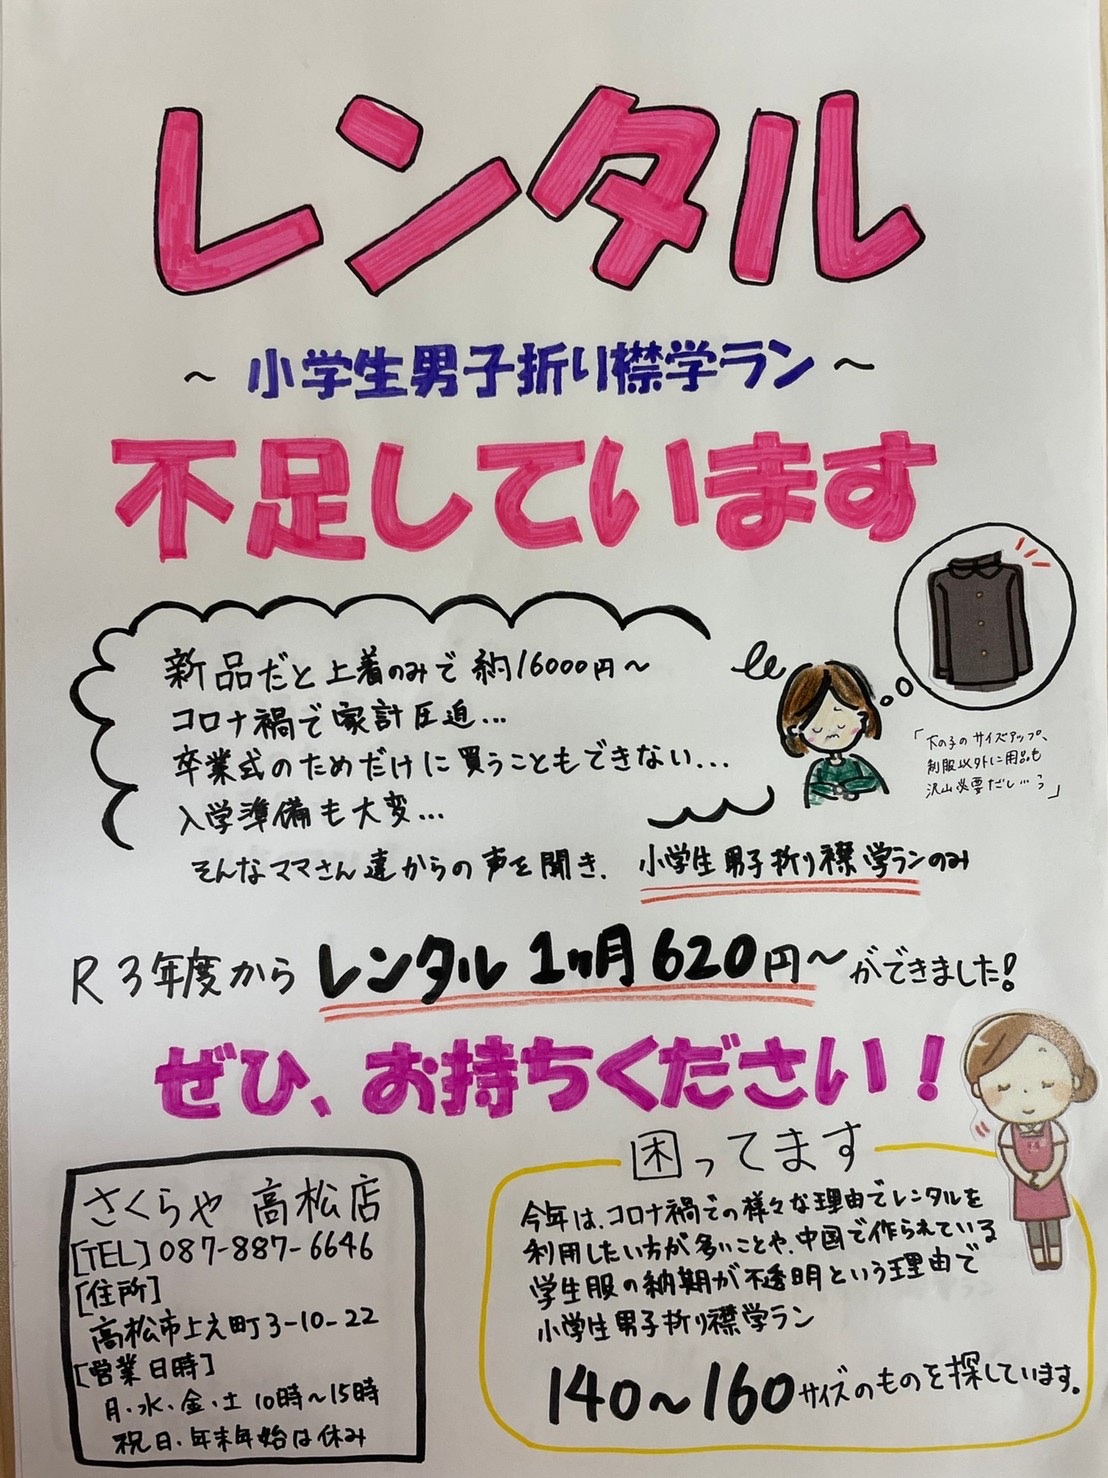 レンタル
〜小学生男子折り襟学ラン〜
不足しています
新品だと上着のみで約16000円〜
コロナ禍で家計圧迫...
卒業式のためだけに買うこともできない...
入学準備も大変...
「下の子のサイズアップ、
制服以外に用品も
沢山必要だし...う」
そんなママさん達からの声を聞き、小学生男子折り襟学ランのみ
R3年度からレンタル1ヶ月620円〜ができました!
ぜひ、お持ちください!
さくらや 高松店
[TEL] 087-887-6646
[住所]
高松市上之町3-10-22
[営業日時]
月・水・金・土 10時〜15時
祝日・年末年始は休み
困ってます
今年は、コロナ禍での様々な理由でレンタルを
利用したい方が多いことや、中国で作られている
学生服の納期が不透明という理由で
小学生男子折り襟学ラン
140〜160サイズのものを探しています。